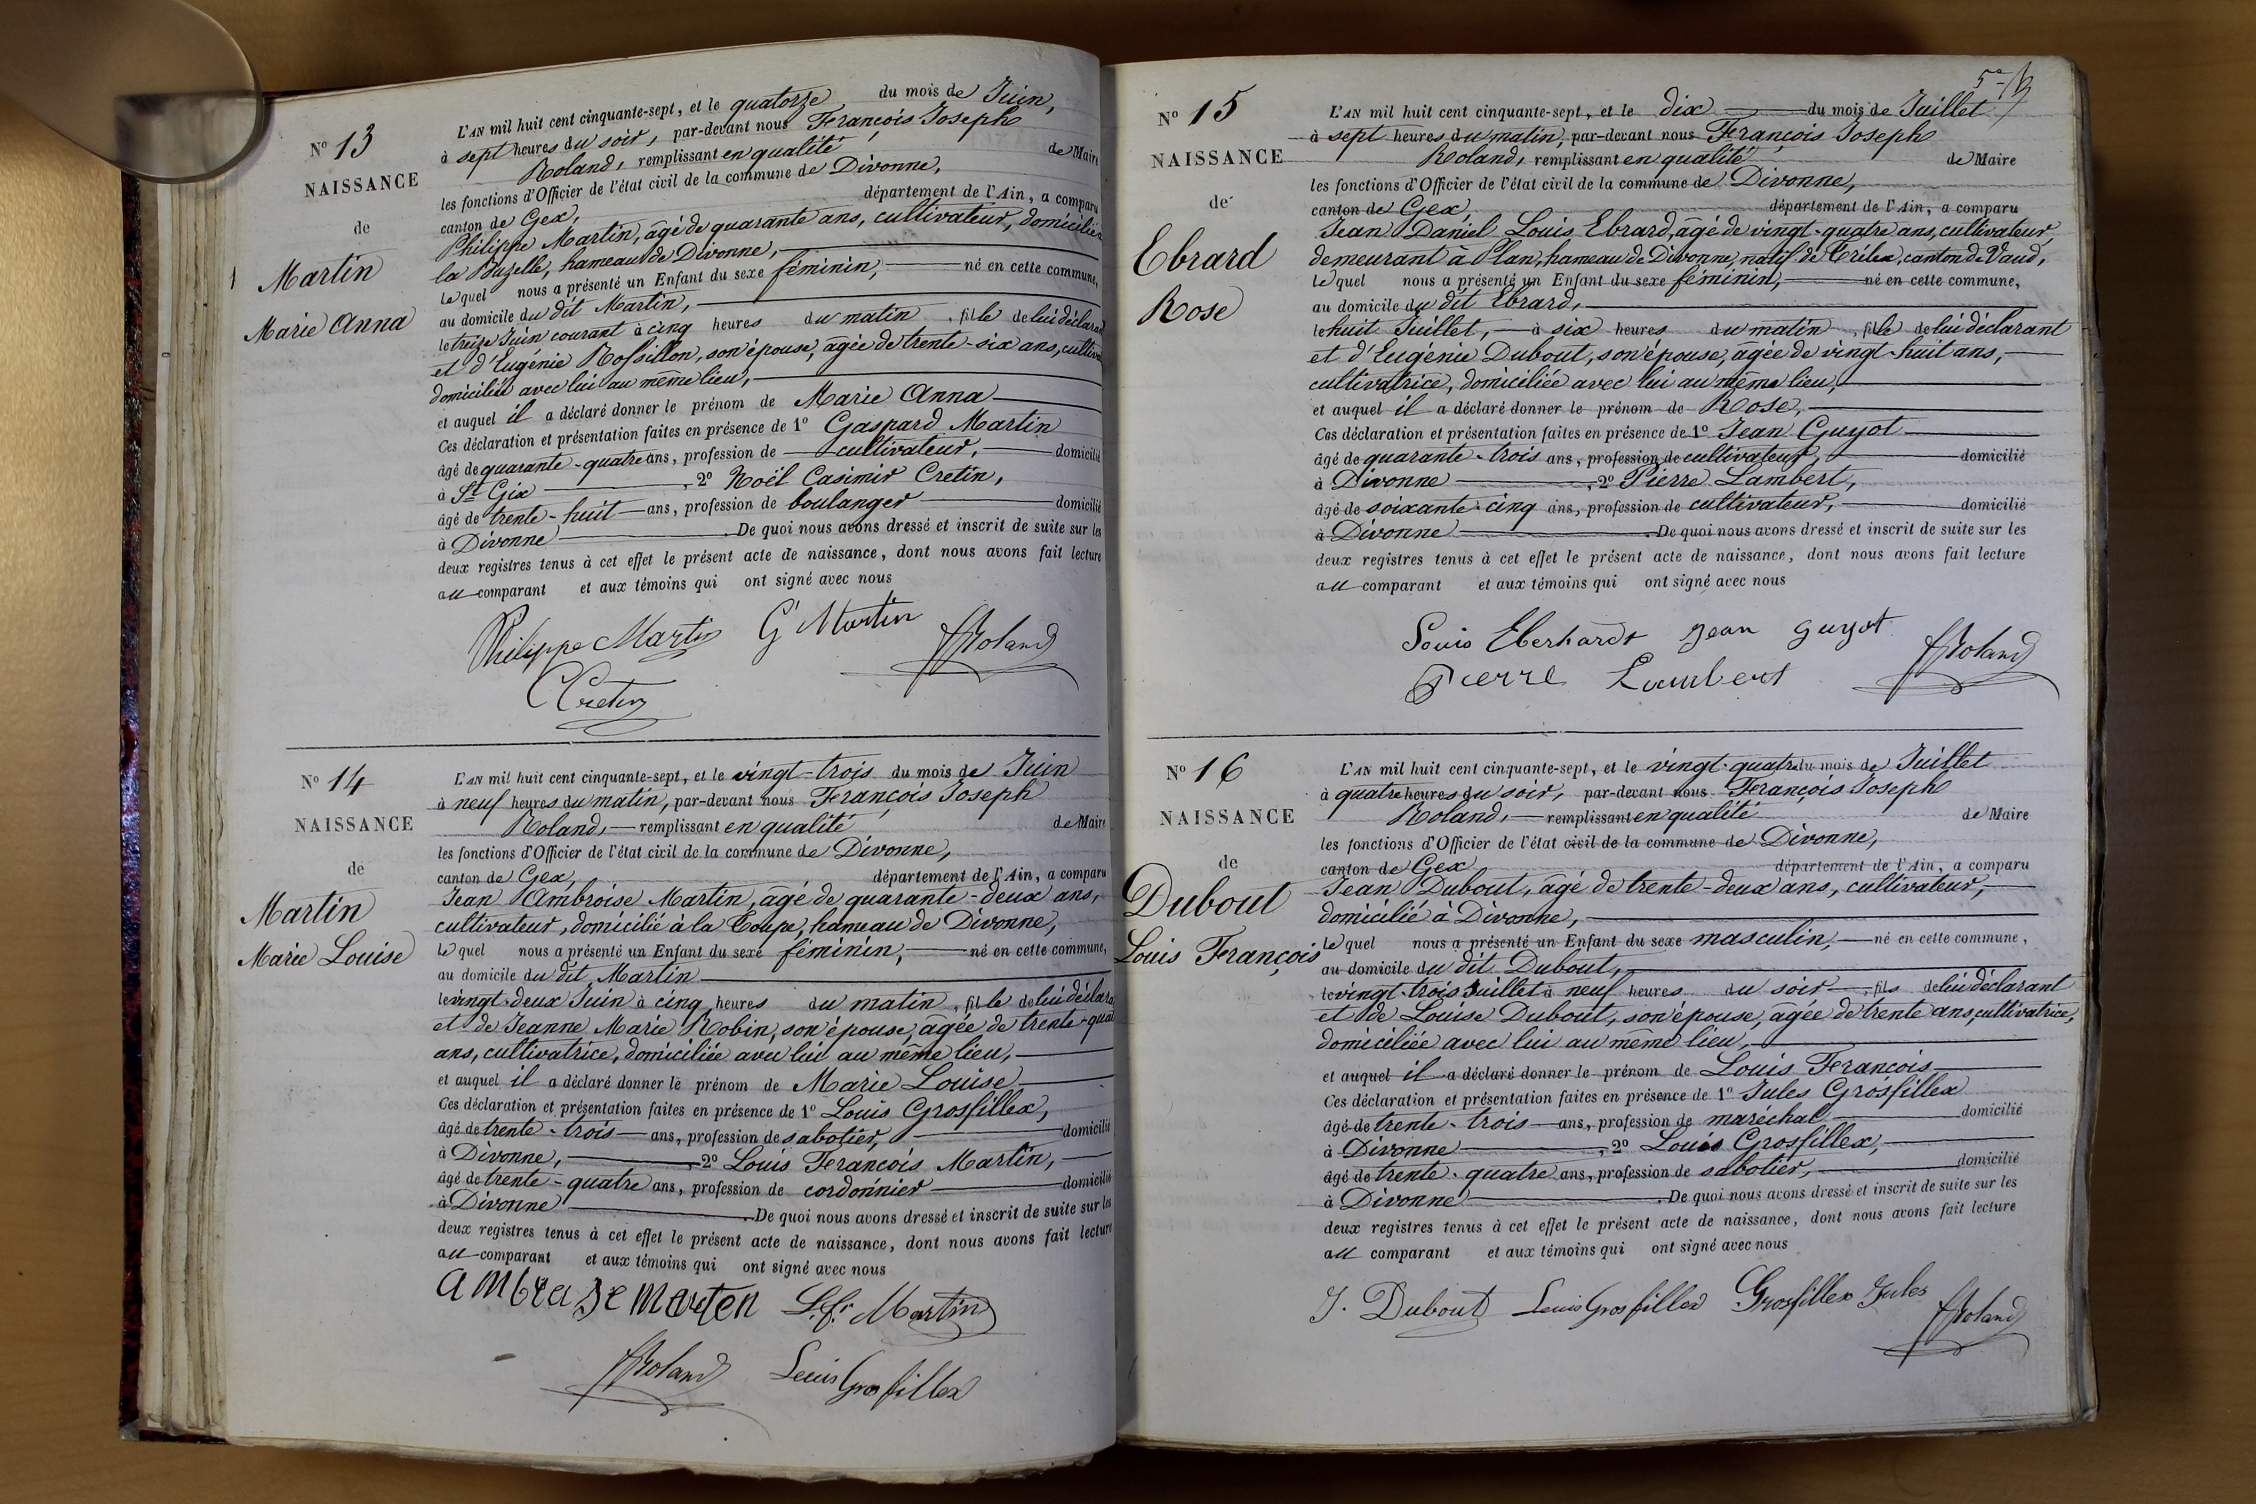 N° 13
NAISSANCE
de
Martin
Marie Anna
L'AN mil huit cent cinquante-sept, et le quatorze du mois de Juin,
à sept heures du soir, par-devant nous François Joseph
Roland, remplissant en qualité de Maire
les fonctions d'Officier de l'état civil de la commune de Divonne,
canton de Gex, département de l'Ain, a comparu
Philippe Martin, âgé de quarante ans, cultivateur, domicilié
la Buzelle, hameau de Divonne,
lequel nous a présenté un Enfant du sexe féminin, né en cette commune,
au domicile du dit Martin,
le treize Juin courant à cinq heures du matin, fille de lui déclarant
et d'Eugénie Rossillon, son épouse, âgée de trente-six ans, cultiva
domiciliée avec lui au même lieu,
et auquel il a déclaré donner le prénom de Marie Anna
Ces déclaration et présentation faites en présence de 1° Gaspard Martin
âgé de quarante-quatre ans, profession de cultivateur, domicilié
à St Gix, 2° Noël Casimir Cretin,
âgé de trente-huit ans, profession de boulanger domicilié
à Divonne. De quoi nous avons dressé et inscrit de suite sur les
deux registres tenus à cet effet le présent acte de naissance, dont nous avons fait lecture
au comparant et aux témoins qui ont signé avec nous
Philippe Martin G Martin FJRoland
CCretin
N° 14
NAISSANCE
de
Martin
Marie Louise
L'AN mil huit cent cinquante-sept, et le vingt-trois du mois de Juin
à neuf heures du matin, par-devant nous François Joseph
Roland, remplissant en qualité de Maire
les fonctions d'Officier de l'état civil de la commune de Divonne,
canton de Gex, département de l'Ain, a comparu
Jean Ambroise Martin, âgé de quarante-deux ans,
cultivateur, domicilié à la Coupe, hameau de Divonne,
lequel nous a présenté un Enfant du sexe féminin, né en cette commune,
au domicile du dit Martin
le vingt-deux Juin à cinq heures du matin, fille de lui déclara
et de Jeanne Marie Robin, son épouse, âgée de trente-quat
ans, cultivatrice, domiciliée avec lui au même lieu,
et auquel il a déclaré donner le prénom de Marie Louise
Ces déclaration et présentation faites en présence de 1° Louis Grosfillex,
âgé de trente-trois ans, profession de sabotier, domicilié
à Divonne, 2° Louis François Martin,
âgé de trente-quatre ans, profession de cordonnier domicilié
à Divonne. De quoi nous avons dressé et inscrit de suite sur les
deux registres tenus à cet effet le présent acte de naissance, dont nous avons fait lecture
au comparant et aux témoins qui ont signé avec nous
ambroise marten L. f. Martin
FJRoland Louis Grosfillex
5e
N° 15
NAISSANCE
de
Ebrard
Rose
L'AN mil huit cent cinquante-sept, et le dix du mois de Juillet
à sept heures du matin, par-devant nous François Joseph
Roland, remplissant en qualité de Maire
les fonctions d'Officier de l'état civil de la commune de Divonne,
canton de Gex, département de l'Ain, a comparu
Jean Daniel Louis Ebrard, âgé de vingt-quatre ans, cultivateur,
demeurant à Plan, hameau de Divonne, natif de Trélex, canton de Vaud,
lequel nous a présenté un Enfant du sexe féminin, né en cette commune,
au domicile du dit Ebrard,
le huit Juillet, à six heures du matin, fille de lui déclarant
et d'Eugénie Dubout, son épouse, âgée de vingt-huit ans,
cultivatrice, domiciliée avec lui au même lieu,
et auquel il a déclaré donner le prénom de Rose,
Ces déclaration et présentation faites en présence de 1° Jean Guyot
âgé de quarante-trois ans, profession de cultivateur, domicilié
à Divonne, 2° Pierre Lambert,
âgé de soixante-cinq ans, profession de cultivateur, domicilié
à Divonne. De quoi nous avons dressé et inscrit de suite sur les
deux registres tenus à cet effet le présent acte de naissance, dont nous avons fait lecture
au comparant et aux témoins qui ont signé avec nous
Louis Eberhardt Jean guyot
Pierre Lambert FJRoland
N° 16
NAISSANCE
de
Dubout
Louis François
L'AN mil huit cent cinquante-sept, et le vingt-quatre du mois de Juillet
à quatre heures du soir, par-devant nous François Joseph
Roland, remplissant en qualité de Maire
les fonctions d'Officier de l'état civil de la commune de Divonne,
canton de Gex département de l'Ain, a comparu
Jean Dubout, âgé de trente-deux ans, cultivateur,
domicilié à Divonne,
lequel nous a présenté un Enfant du sexe masculin, né en cette commune,
au domicile du dit Dubout,
le vingt-trois Juillet à neuf heures du soir, fils de lui déclarant
et de Louise Dubout, son épouse, âgée de trente ans, cultivatrice,
domiciliée avec lui au même lieu,
et auquel il a déclaré donner le prénom de Louis François
Ces déclaration et présentation faites en présence de 1° Jules Grosfillex
âgé de trente-trois ans, profession de maréchal domicilié
à Divonne, 2° Louis Grosfillex,
âgé de trente-quatre ans, profession de sabotier, domicilié
à Divonne. De quoi nous avons dressé et inscrit de suite sur les
deux registres tenus à cet effet le présent acte de naissance, dont nous avons fait lecture
au comparant et aux témoins qui ont signé avec nous
J. Dubout Louis Grosfillex Grosfillex Jules FJRoland